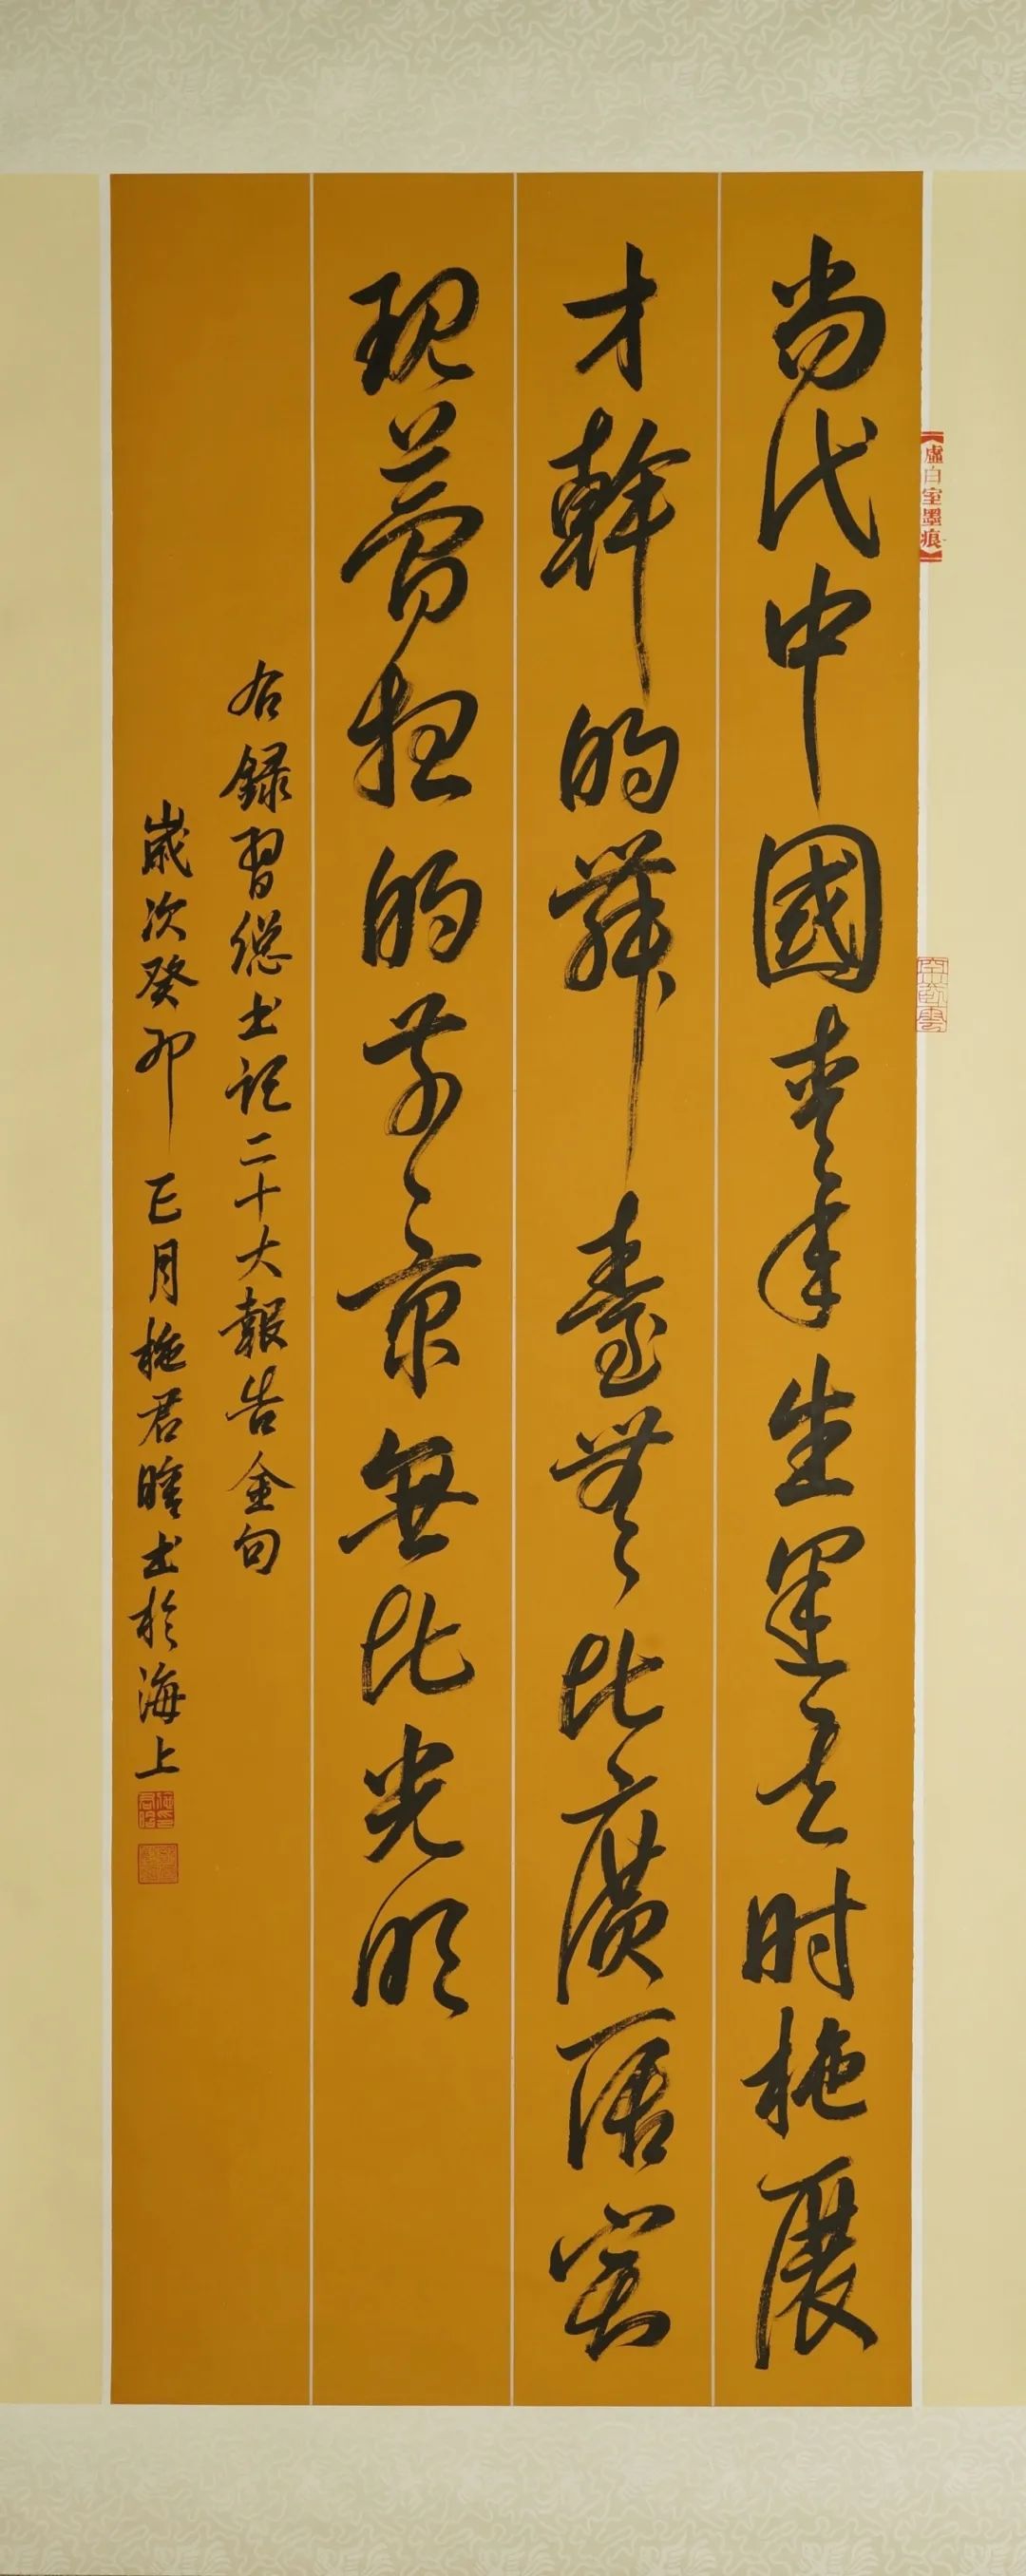 当代中國青年生逢其时施展
才幹的舞臺無比廣阔实
现夢想的前景無比光明
右録習總书记二十大報告金句
歲次癸卯正月施君晧书於海上
虛白室墨痕